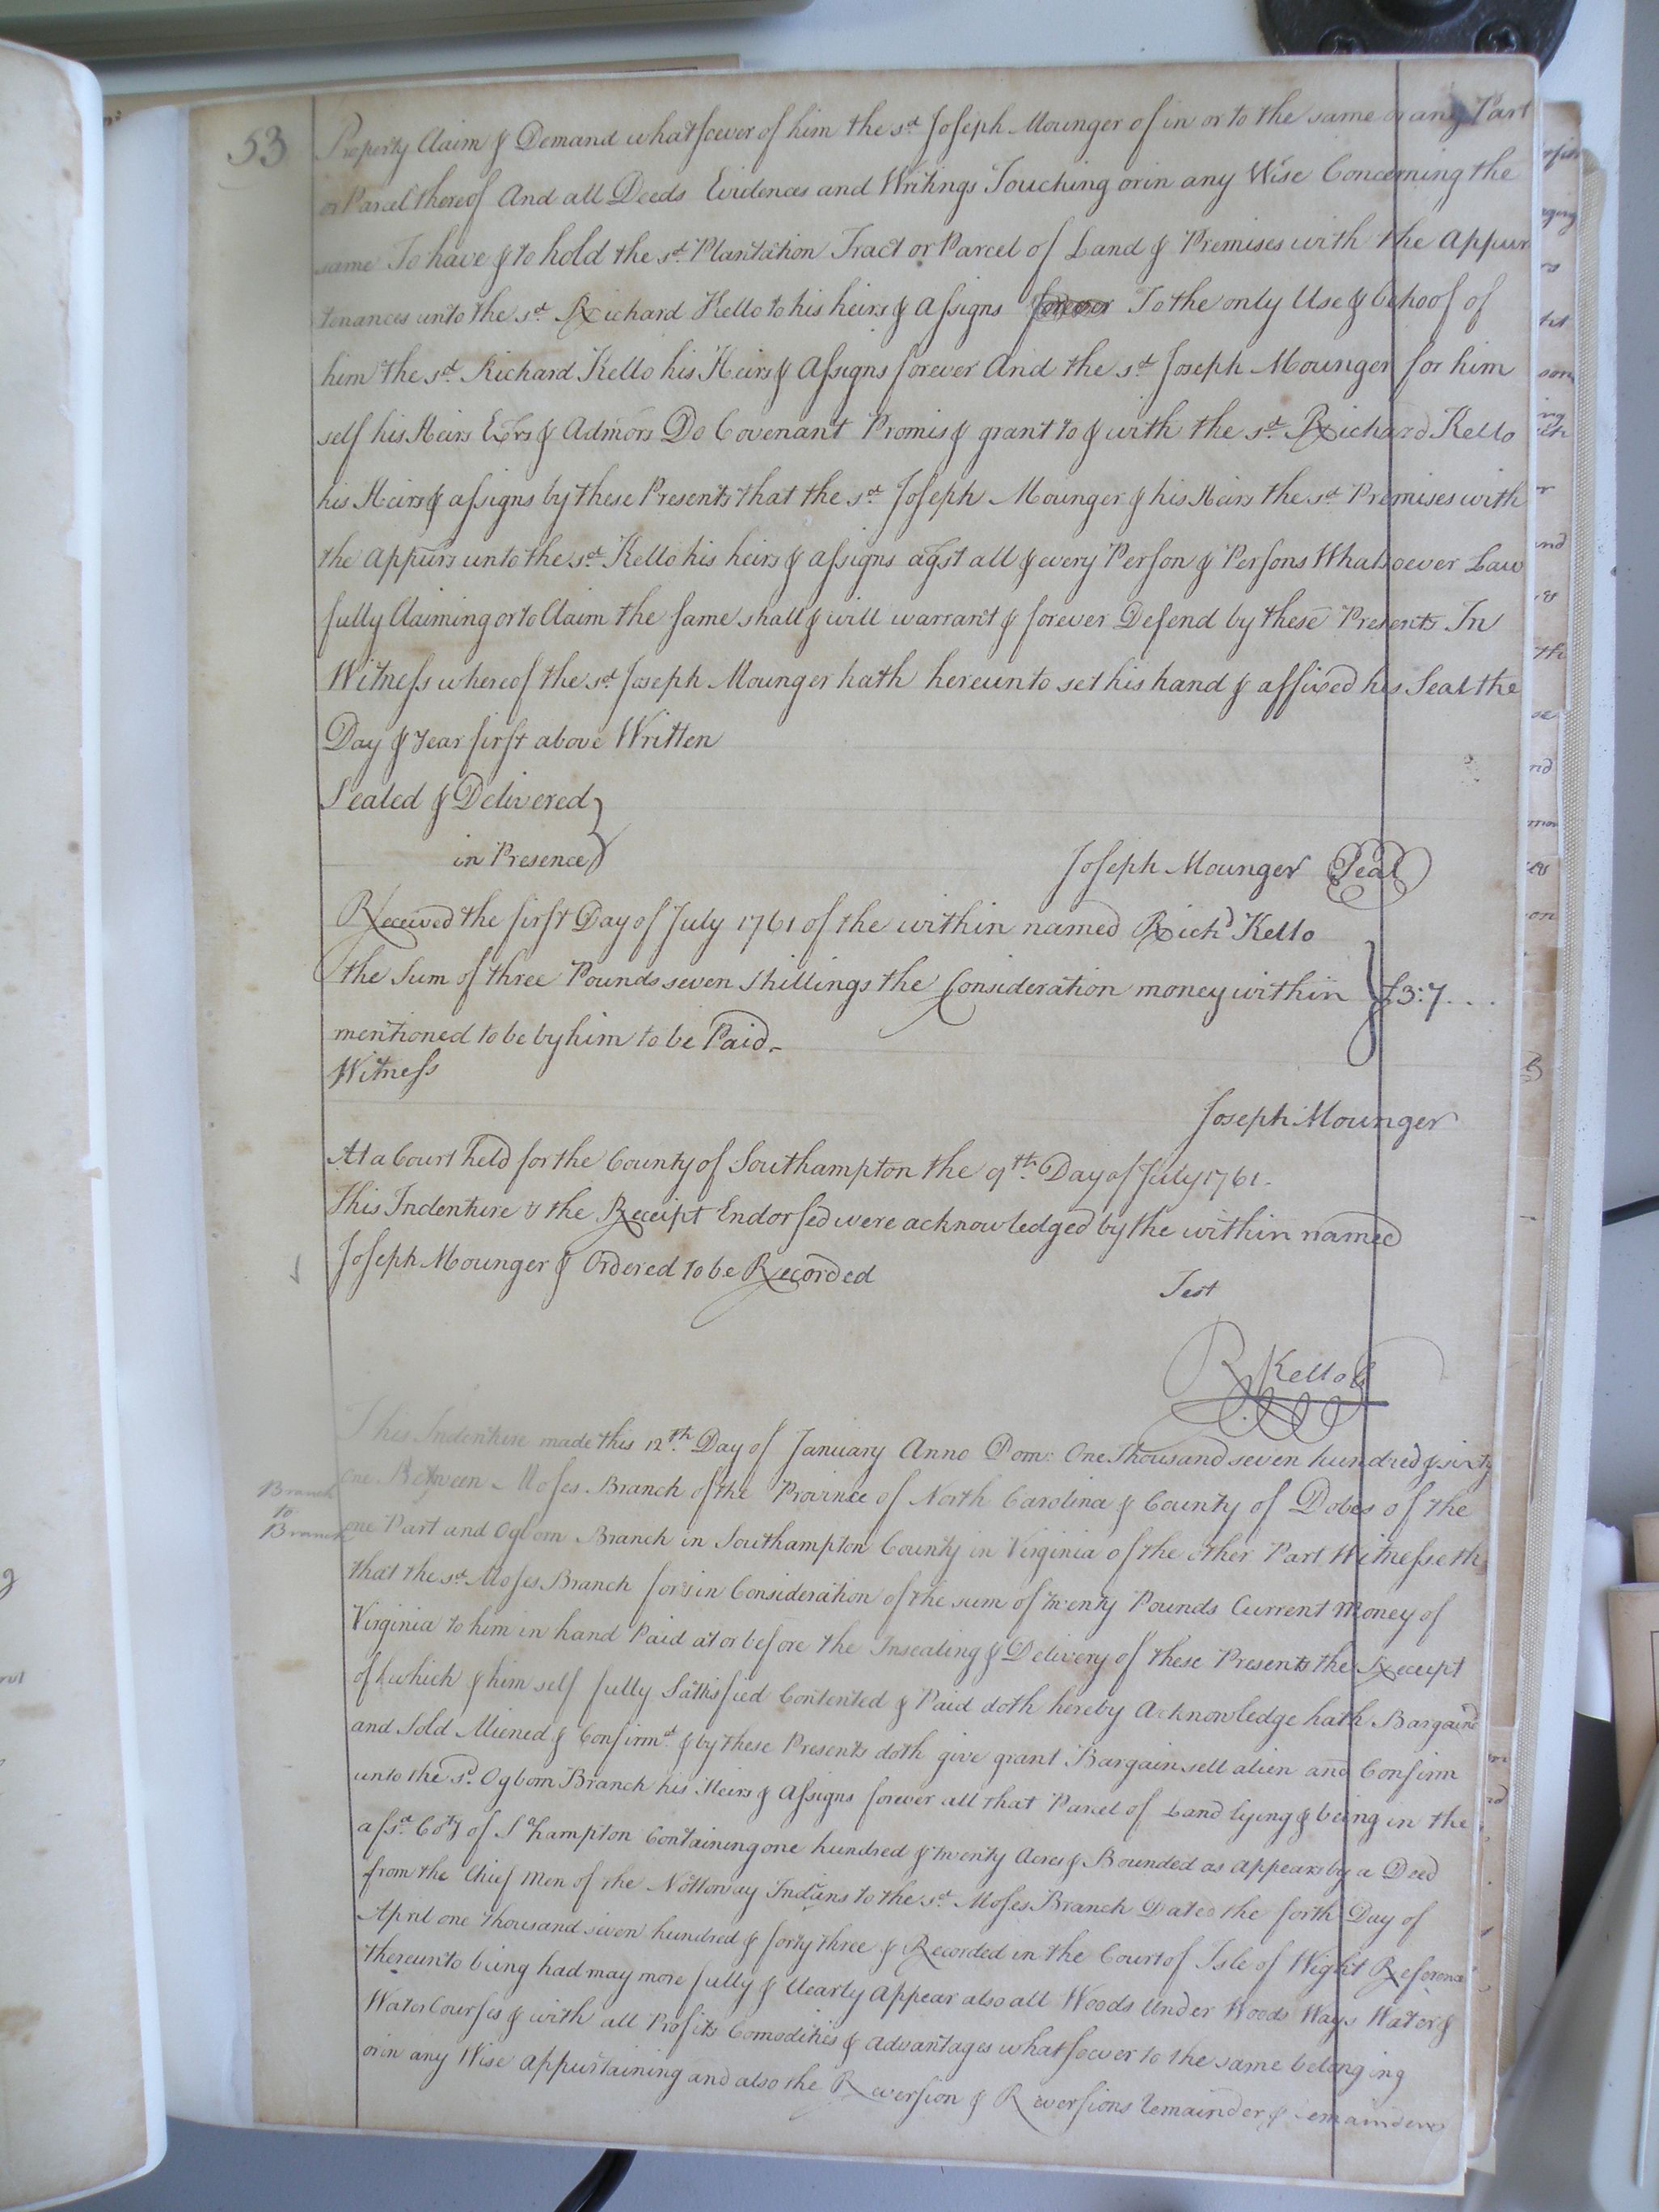 53
Property Claim & Demand whatsoever of him the sd. Joseph Mounger of in or to the same or any Part
or Parcel thereof And all Deeds Evidences and Writings Touching or in any Wise Concerning the
same To have & to hold the sd. Plantation Tract or Parcel of Land & Premises with the Appur
tenances unto the sd. Richard Kello to his heirs & assigns forever To the only Use & behoof of
him the sd. Richard Kello his Heirs & Assigns forever And the sd. Joseph Mounger for him
self his Heirs Exrs & Admors Do Covenant Promis & grant to & with the sd. Richard Kello
his Heirs & assigns by these Presents that the sd. Joseph Mounger & his Heirs the sd. Premises with
the Appurs unto the sd. Kello his heirs & assigns agst all & every Person & Persons Whatsoever Law
fully Claiming or to Claim the same shall & will warrant & forever Defend by these Presents In
Witness whereof the sd. Joseph Mounger hath hereunto set his hand & affixed his Seal the
Day & Year first above Written
Sealed & Delivered
in Presence
Joseph Mounger Seal
Received the first Day of July 1761 of the within named Richd Kello
the Sum of three Pounds seven Shillings the Consideration money within £3:7...
mentioned to be by him to be Paid.
Witness
Joseph Mounger
At a Court held for the County of Southampton the 9th. Day of July 1761.
This Indenture & the Receipt Endorsed were acknowledged by the within named
Joseph Mounger & Ordered to be Recorded
Test
R Kello
This Indenture made this 12th. Day of January Anno Dom: One Thousand seven hundred & sixty
Branch
to
Branch
one Between Moses Branch of the Province of North Carolina & County of Dobes of the
one Part and Ogborn Branch in Southampton County in Virginia of the other Part Witnesseth
that the sd. Moses Branch for & in Consideration of the sum of twenty Pounds Current Money of
Virginia to him in hand Paid at or before the Insealing & Delivery of these Presents the Receipt
of which & him self fully Sattisfied Contented & Paid doth hereby Acknowledge hath Bargaind
and Sold Aliened & Confirmd. & by these Presents doth give grant Bargain sell alien and Confirm
unto the sd. Ogborn Branch his Heirs & Assigns forever all that Parcel of Land lying & being in the
afsd. Coty of Shampton Containing one hundred & twenty Acres & Bounded as appears by a Deed
from the Chief Men of the Nottoway Indians to the sd. Moses Branch Dated the forth Day of
April one thousand seven hundred & forty three & Recorded in the Court of Isle of Wight Referonce
thereunto being had may more fully & Clearly Appear also all Woods Under Woods Ways Water &
Water Courses & with all Profits Comodities & Advantages whatsoever to the same belonging
or in any Wise Appurtaining and also the Reversion & Reversions Remainder & Remainders